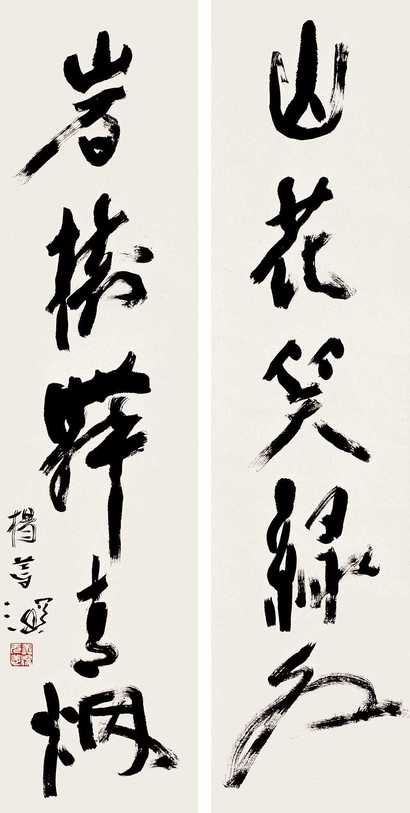 山花笑綠水
岩樹舞青烟
楊善深